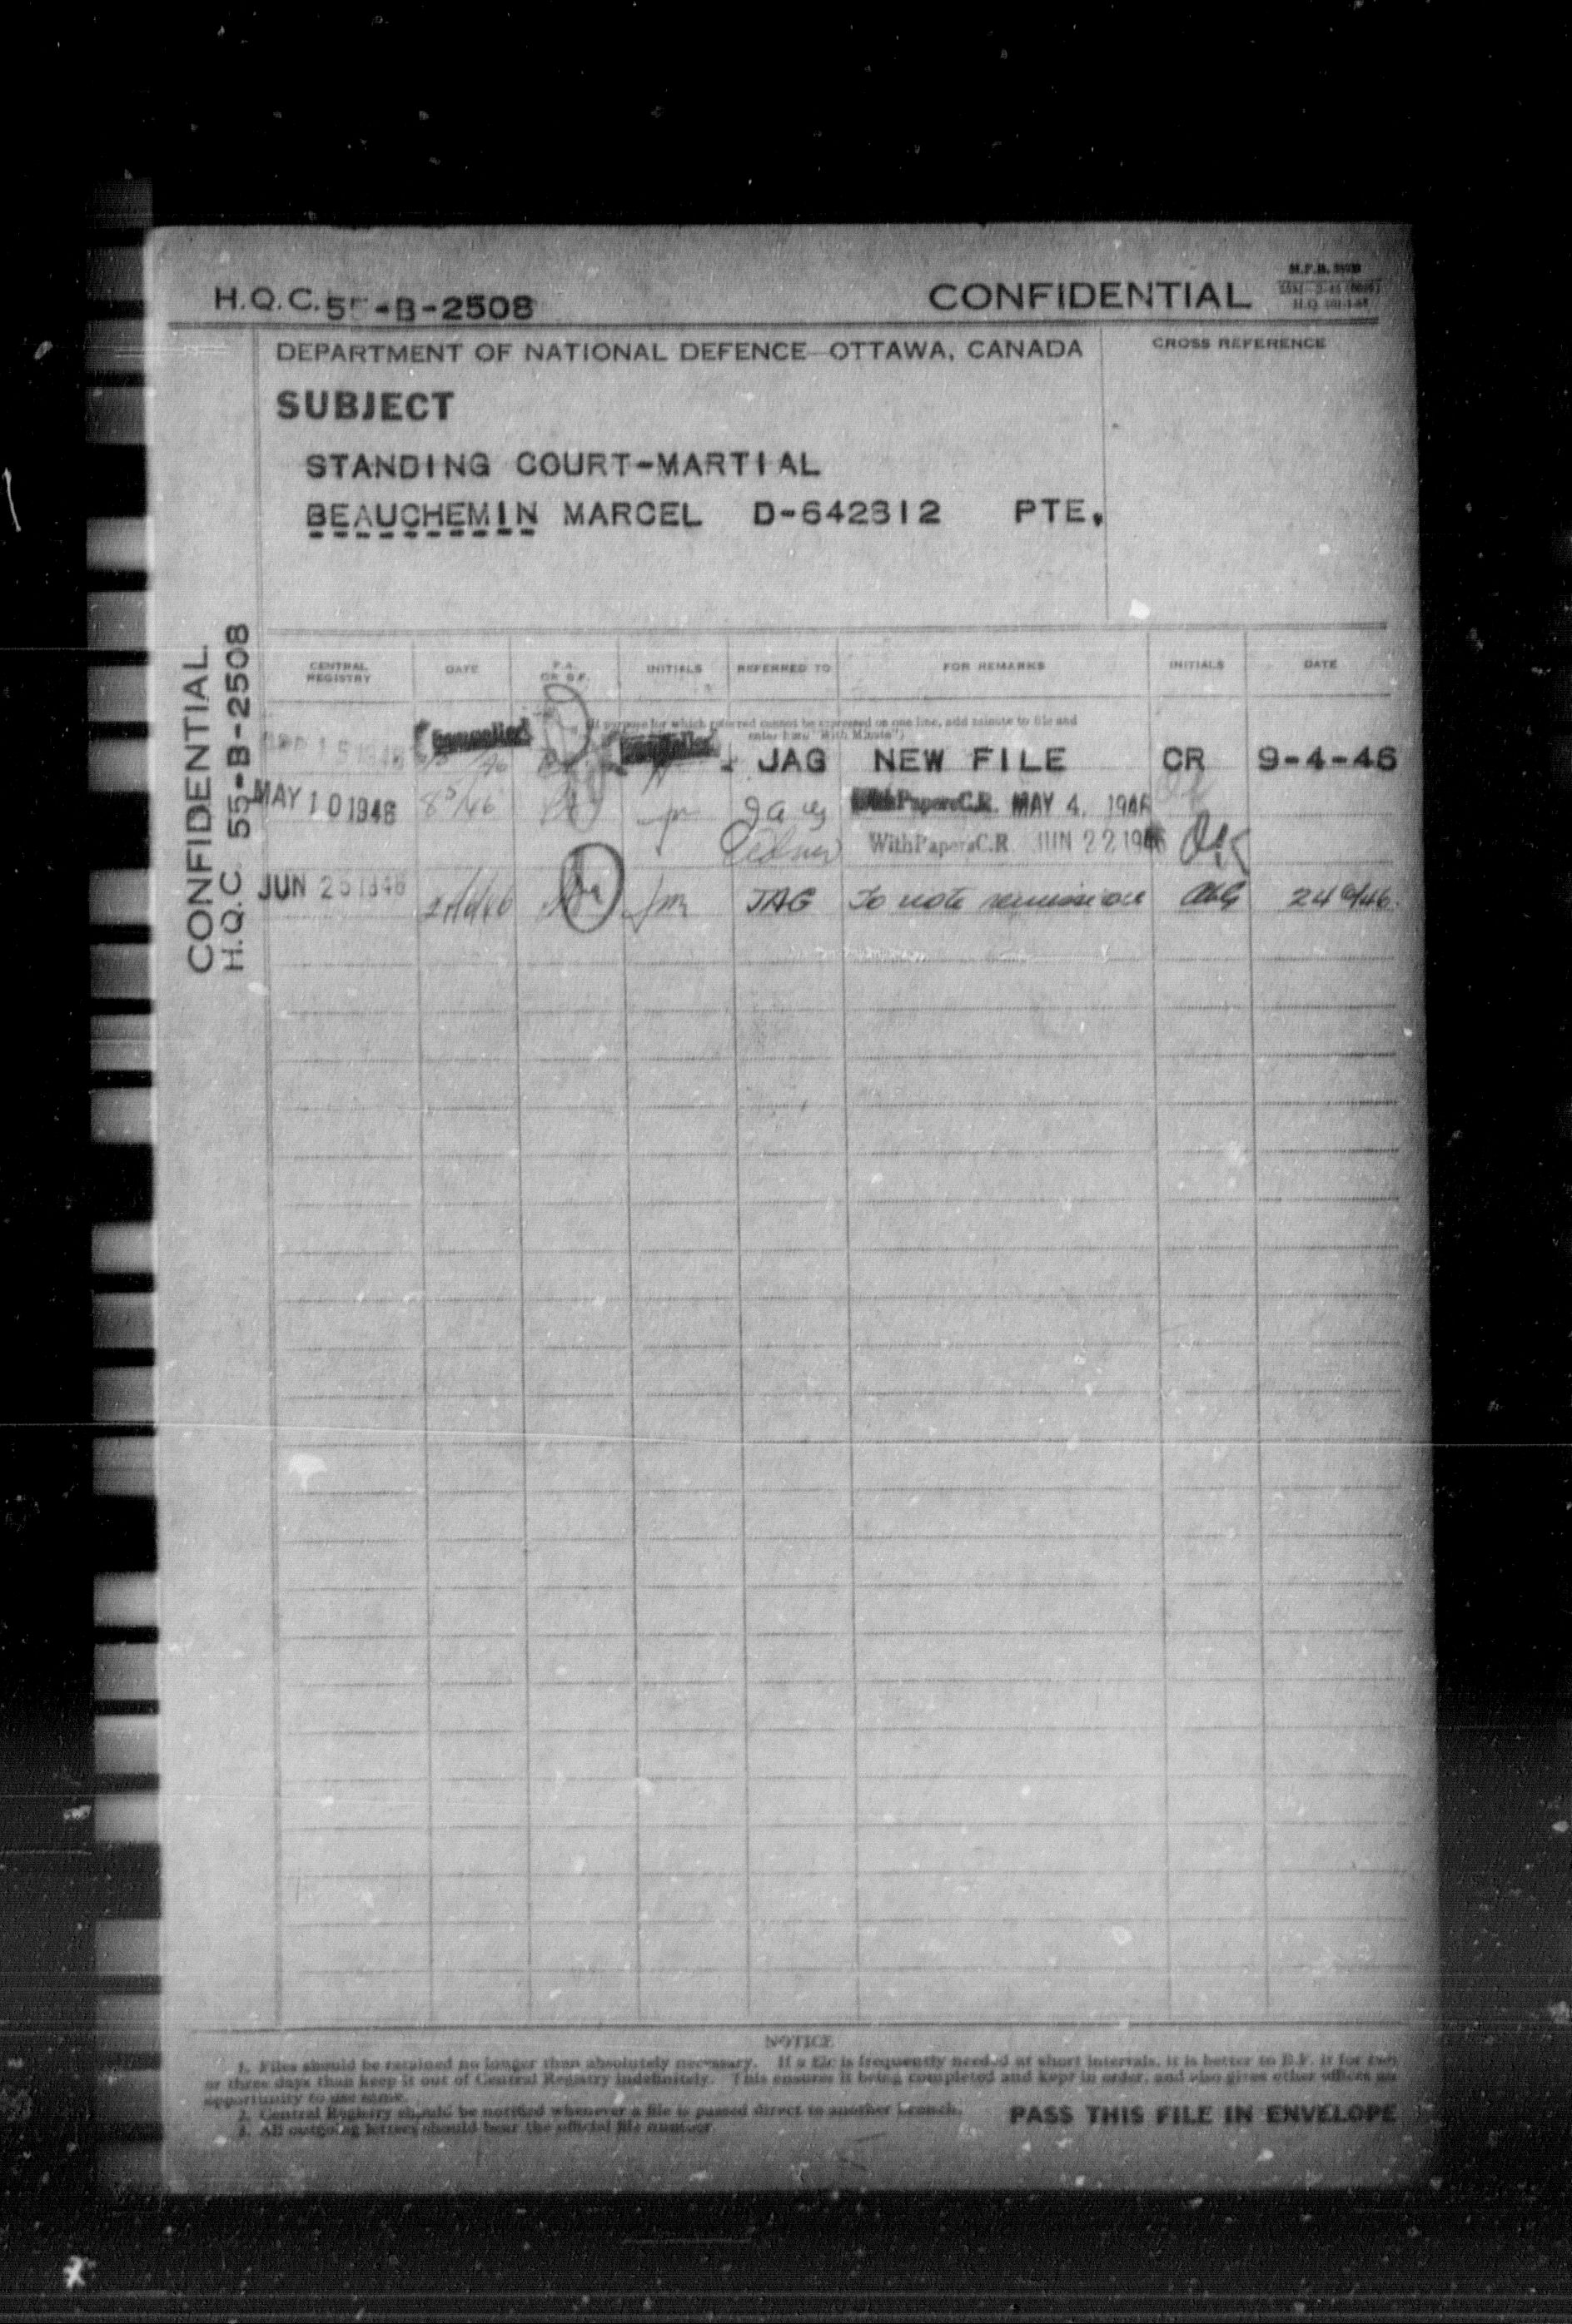 H.Q.C. 55-B-2508 CONFIDENTIAL
DEPARTMENT OF NATIONAL DEFENCE—OTTAWA, CANADA
CROSS REFERENCE
SUBJECT
STANDING COURT-MARTIAL
BEAUCHEMIN MARCEL D-642312 PTE.
CONFIDENTIAL
H.Q.C. 55-B-2508
CENTRAL REGISTRY DATE P.A. OR B.F. INITIALS REFERRED TO FOR REMARKS INITIALS DATE
(If purpose for which referred cannot be expressed on one line, add minute to file and
enter here "With Minute")
Cancelled JAG NEW FILE CR 9-4-46
MAY 10 1946 8/5/46 With Papers C.R. MAY 4, 1946
With Papers C.R. JUN 22 1946
JUN 25 1946 JAG To note remission 24/6/46
NOTICE
1. Files should be retained no longer than absolutely necessary. If a file is frequently needed at short intervals, it is better to B.F. it for two
or three days than keep it out of Central Registry indefinitely. This ensures it being completed and kept in order, and also gives other offices an
opportunity to use same.
2. Central Registry should be notified whenever a file is passed direct to another branch.
3. All outgoing letters should bear the official file number.
PASS THIS FILE IN ENVELOPE